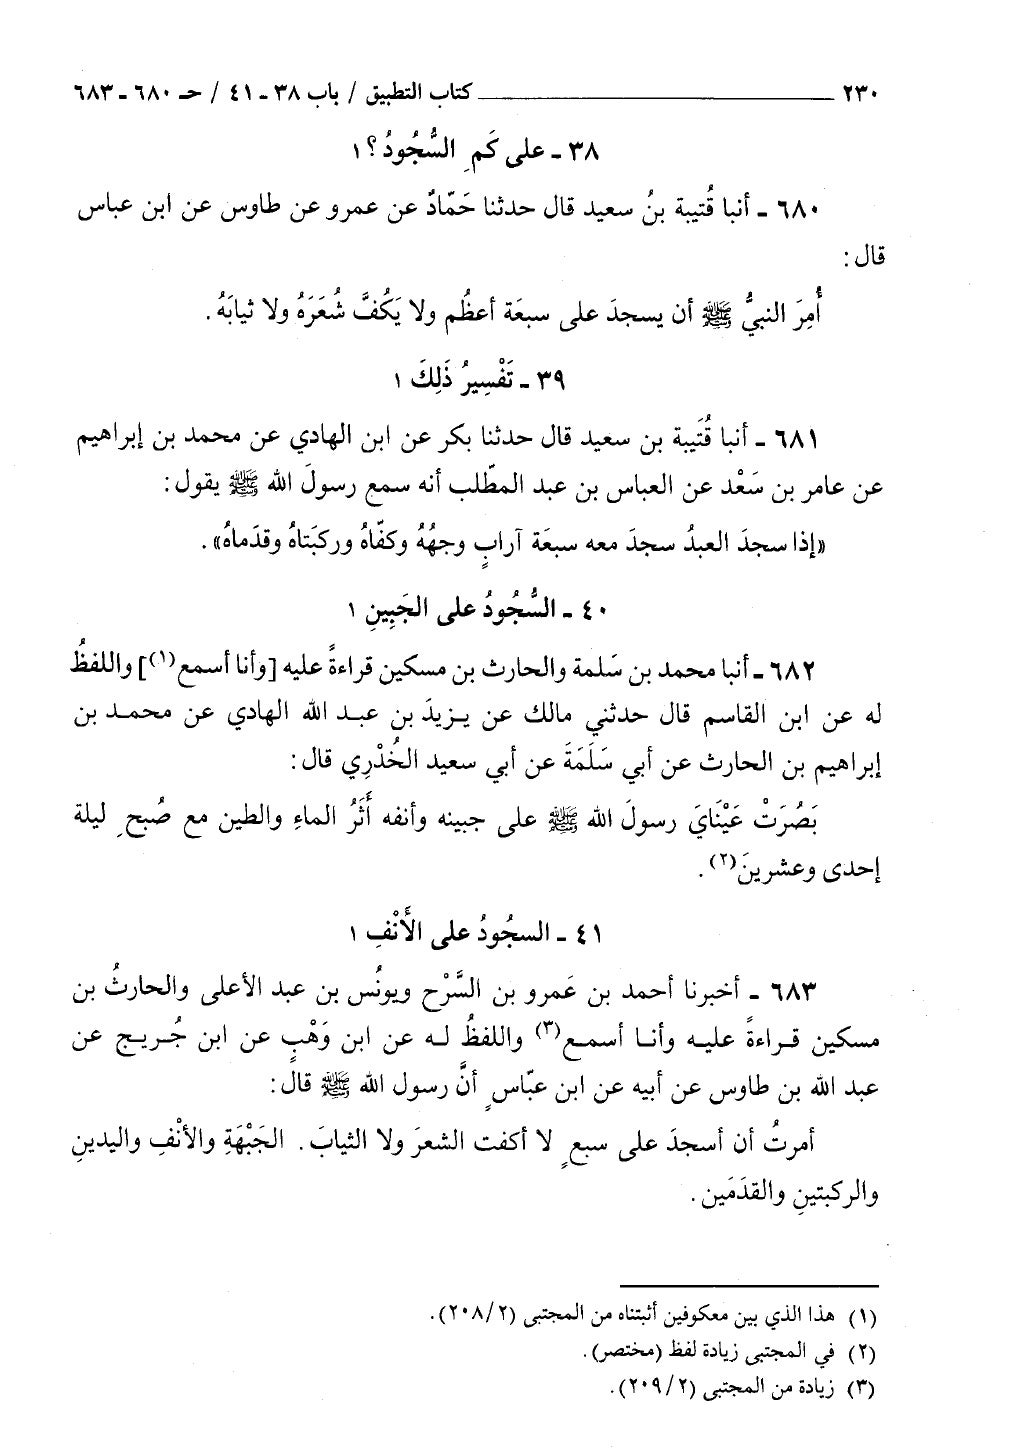 ٢٣٠ ــــــ كتاب التطبيق / باب ٣٨ ـ ٤١ / حـ ٦٨٠ ـ ٦٨٣
٣٨ ـ على كَمِ السُّجُودُ؟ ١
٦٨٠ ـ أنبا قُتيبة بنُ سعيد قال حدثنا حَمّادٌ عن عمرو عن طاوس عن ابن عباس
قال:
أُمِرَ النبيُّ ﷺ أن يسجدَ على سبعَة أعظُم ولا يَكُفَّ شُعَرَهُ ولا ثيابَهُ.
٣٩ ـ تَفْسِيرُ ذَلِكَ ١
٦٨١ ـ أنبا قُتَيبة بن سعيد قال حدثنا بكر عن ابن الهادي عن محمد بن إبراهيم
عن عامر بن سَعْد عن العباس بن عبد المطّلب أنه سمع رسولَ الله ﷺ يقول:
«إذا سجدَ العبدُ سجدَ معه سبعَة آرابٍ وجهُهُ وكفّاهُ وركبَتاهُ وقدَماهُ».
٤٠ ـ السُّجُودُ على الجَبِينِ ١
٦٨٢ ـ أنبا محمد بن سَلمة والحارث بن مسكين قراءةً عليه [وأنا أسمع(١)] واللفظُ
له عن ابن القاسم قال حدثني مالك عن يزيدَ بن عبد الله الهادي عن محمد بن
إبراهيم بن الحارث عن أبي سَلَمَةَ عن أبي سعيد الخُدْرِي قال:
بَصُرَتْ عَيْنَايَ رسولَ الله ﷺ على جبينه وأنفه أَثَرُ الماءِ والطين مع صُبحِ ليلة
إحدى وعشرينَ(٢).
٤١ ـ السجُودُ على الأَنْفِ ١
٦٨٣ ـ أخبرنا أحمد بن عَمرو بن السَّرْح ويونُس بن عبد الأعلى والحارثُ بن
مسكين قراءةً عليه وأنا أسمع(٣) واللفظُ له عن ابن وَهْبٍ عن ابن جُريج عن
عبد الله بن طاوس عن أبيه عن ابن عبّاسٍ أنَّ رسول الله ﷺ قال:
أمرتُ أن أسجدَ على سبعٍ لا أكفت الشعرَ ولا الثيابَ. الجَبْهَةِ والأنْفِ واليدينِ
والركبتينِ والقدَمَين.
(١) هذا الذي بين معكوفين أثبتناه من المجتبى (٢٠٨/٢).
(٢) في المجتبى زيادة لفظ (مختصر).
(٣) زيادة من المجتبى (٢٠٩/٢).